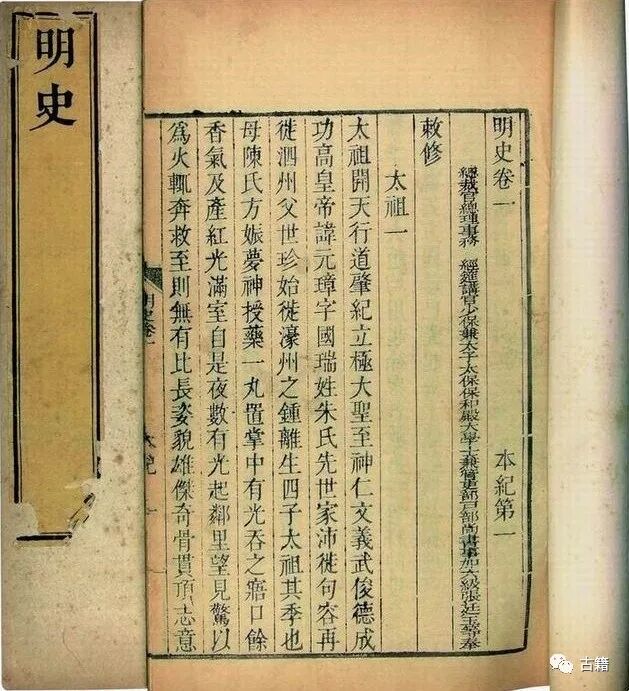 明史
明史卷一 本紀第一
總裁官總理事務 經筵講官少保兼太子太保保和殿大學士兼管吏部戶部尚書事加六級張廷玉等奉
敕修
太祖一
太祖開天行道肇紀立極大聖至神仁文義武俊德成
功高皇帝諱元璋字國瑞姓朱氏先世家沛徙句容再
徙泗州父世珍始徙濠州之鍾離生四子太祖其季也
母陳氏方娠夢神授藥一丸置掌中有光吞之寤口餘
香氣及產紅光滿室自是夜數有光起鄰里望見驚以
爲火輒奔救至則無有比長姿貌雄傑奇骨貫頂志意
明史卷一
古籍